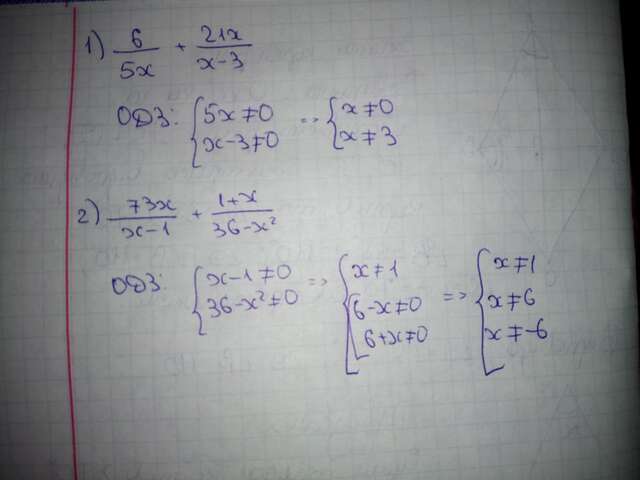 1) 6/5x + 21x/x-3
ОДЗ: { 5x≠0 => { x≠0
x-3≠0 x≠3
2) 73x/x-1 + 1+x/36-x²
ОДЗ: { x-1≠0 => { x≠1 => { x≠1
36-x²≠0 6-x≠0 x≠6
6+x≠0 x≠-6